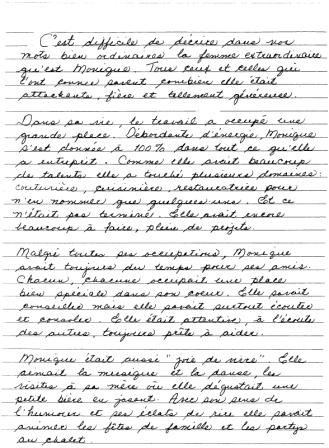 C'est difficile de décrire dans nos
mots bien ordinaires la femme extraordinaire
qu'est Monique. Tous ceux et celles qui
l'ont connue savent combien elle était
attachante, fière et tellement généreuse.
Dans sa vie, le travail a occupé une
grande place. Débordante d'énergie, Monique
s'est donnée à 100% dans tout ce qu'elle
a entrepris. Comme elle avait beaucoup
de talents elle a touché plusieurs domaines:
couturière, cuisinière, restauratrice pour
n'en nommer que quelques uns. Et ce
n'était pas terminé. Elle avait encore
beaucoup à faire, plein de projets.
Malgré toutes ses occupations, Monique
avait toujours du temps pour ses amis.
Chacun, chacune occupait une place
bien spéciale dans son coeur. Elle savait
conseiller mais elle savait surtout écouter
et consoler. Elle était attentive, à l'écoute
des autres, toujours prête à aider.
Monique était aussi "joie de vivre". Elle
aimait la musique et la danse, les
visites à sa mère où elle dégustait une
petite bière en jasant. Avec son sens de
l'humour et ses éclats de rire elle savait
animer les fêtes de famille et les partys
au chalet.